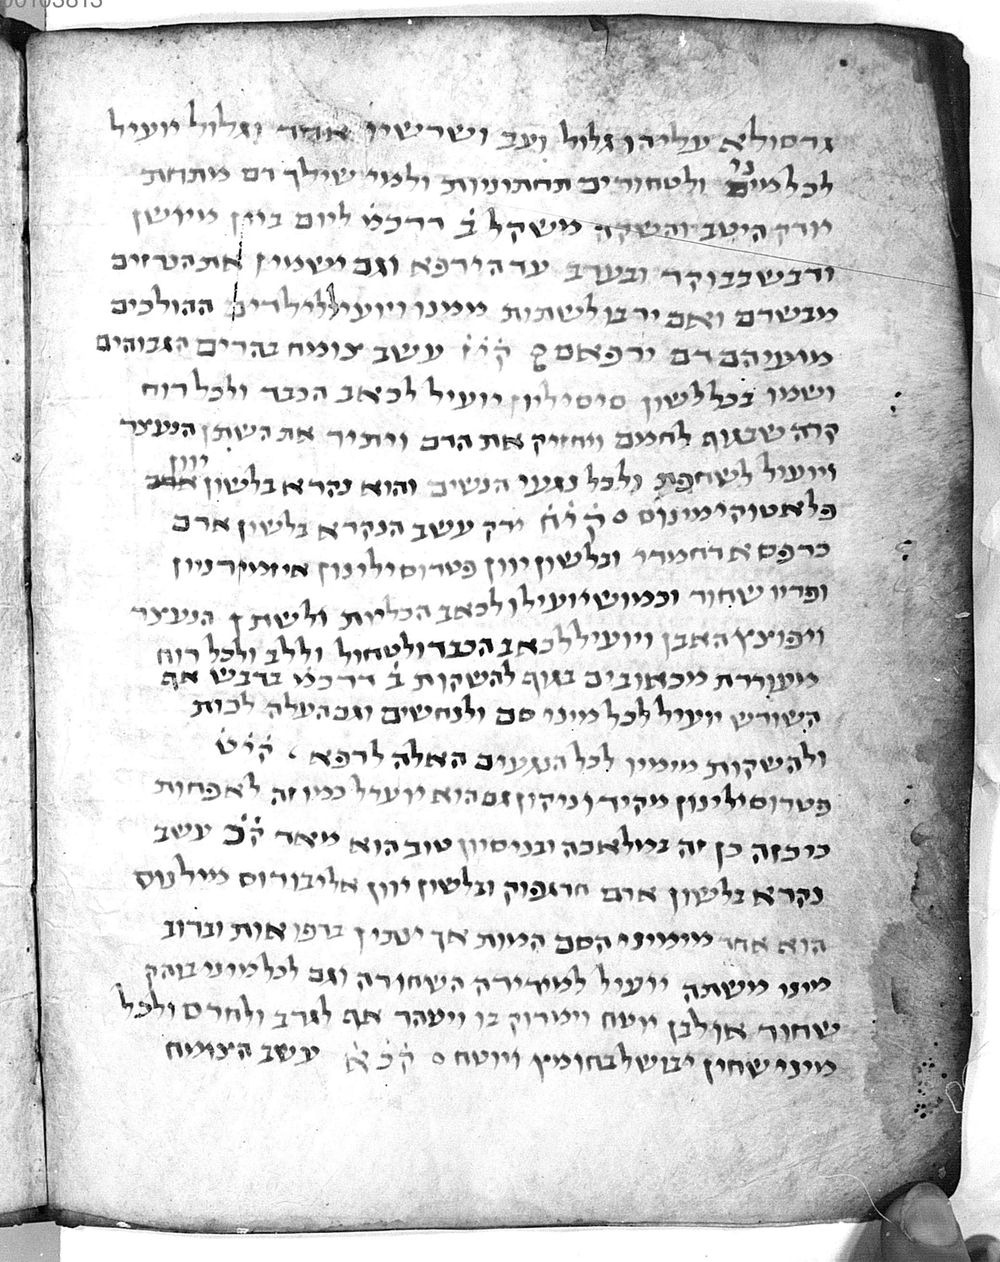 00103813
גרסולא עליהו גלול ועב ושרשיו אחר וגלול יועיל
לכל מיני ולטחורים תחתוניות ולמי שילך דם מתחת
יודק היטב והשקה משקל ב̇ דרכמ̇ ליום ביין מיושן
ודבש בבוקר ובערב עד הירפא וגם ישמין את הרזים
מבשרם ואם ירבו לשתות ממנו ויועיל לילדים ההולכים
מועיהם דם ירפאם ק̇י̇ז̇ עשב צומח בהרים הגבוהים
ושמו בכל לשון סיסיליון יועיל לכאב הכבד ולכל רוח
קרה שבגוף לחמם ויחזיק את הדם ויתיר את השתן הנעצר
ויועיל לשחפת ולכל נגעי הנשים והוא נקרא בלשון יוון
פלאטוקימינוס ק̇י̇ח̇ ירק עשב הנקרא בלשון ארם
כרפסא דחמרי ובלשון יוון פטרוסילינון
ופריו שחור וכמוש יועיל לכאב הכליות ולשתן הנעצר
ויפוצץ האבן ויועיל לכאב הכבד ולטחול וללב ולכל רוח
מעוררת מכאובים בגוף להשקות ב̇ דרכמ̇ בדבש אף
השורש יועיל לכל מיני סם ולנחשים וגם העלה לכות
ולהשקות מימיו לכל הנגעים האלה לרפא ק̇י̇ט̇
פטרוסילינון מקידוניקון גם הוא יועיל כמו זה לא פחות
כי כזה כן זה במלאכה ובניסיון טוב הוא מאד ק̇כ̇ עשב
נקרא בלשון ארם חרגפוק ובלשון יוון אליבורוס מילנוס
הוא אחד מימיני הסם המות אך ינתין ברפואות וברוב
מיני משתה יועיל למרירה השחורה וגם לכל מיני בוהק
שחור או לבן יוטח וימרוק בו ויטהר אף לגרב ולחרס ולכל
מיני שחין יבושל בחומץ ויוטח ק̇כ̇א̇ עשב הצומח